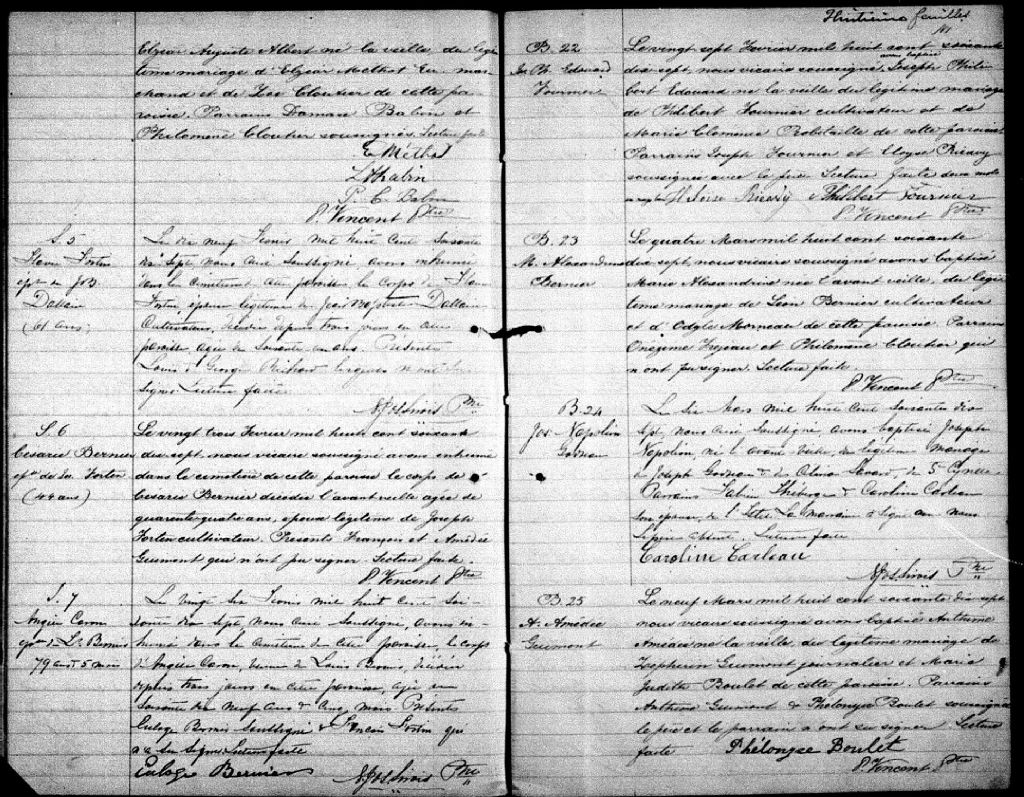 Elzéar Auguste Albert né la veille du légi
time mariage d'Elzéar Méthot Eu. mar
chand et de Zoé Cloutier de cette pa
roisse. Parrains Damase Babin et
Philomène Cloutier soussignés. Lecture faite
E Méthot
P. C. Babin
P. Vincent Ptre
S. 5
épse de J.B.
Dallaire
(61 ans)
Le dix neuf Février mil huit cent soixante
dix sept, nous curé soussigné, avons inhumé
dans le cimetière de cette paroisse le corps de
Fortin, épouse légitime de Jean Baptiste Dallaire
Cultivateur, décédée depuis trois jours en cette
paroisse, agée de soixante un ans. Présents
Louis & George Richard lesquels n'ont su
signer. Lecture faite
Ptre
S. 6
Césarie Bernier
épse de Jos. Fortin
(44 ans)
Le vingt trois Février mil huit cent soixante
dix sept nous vicaire soussigné avons inhumé
dans le cimetière de cette paroisse le corps de
Césarie Bernier décédée l'avant veille agée de
quarante quatre ans, épouse légitime de Joseph
Fortin cultivateur. Présents François et Amédée
Guimont qui n'ont pu signer. Lecture faite.
P. Vincent Ptre
S. 7
Angèle Caron
79 ans & 5 mois
Le vingt six Février mil huit cent soi-
xante dix sept nous curé soussigné, avons in-
humé dans le cimetière de cette paroisse, le corps
d'Angèle Caron, veuve de Louis Bernier, décédée
depuis trois jours en cette paroisse, agée de
soixante dix neuf ans & cinq mois. Présents
Euloge Bernier soussigné & Fortin qui
n'a su signer. Lecture faite
Euloge Bernier
Ptre
Huitième feuillet
B. 22
Jos. Ph. Edouard
Fournier
Le vingt sept Février mil huit cent soixante
dix sept, nous vicaire soussigné avons baptisé Joseph Phili
bert Edouard né la veille du légitime mariage
de Philibert Fournier cultivateur et de
Marie Clémence Robitaille de cette paroisse
Parrains Joseph Fournier et
soussignés avec le père. Lecture faite deux mots
Philibert Fournier
P. Vincent Ptre
B. 23
M. Alexandrine
Bernier
Le quatre Mars mil huit cent soixante
dix sept, nous vicaire soussigné avons baptisé
Marie Alexandrine née l'avant veille, du légi
time mariage de Léon Bernier cultivateur
et d'Odyle Morneau de cette paroisse. Parrains
Onézime et Philomène Cloutier qui
n'ont pu signer. Lecture faite.
P. Vincent Ptre
B. 24
Jos. Napoléon
Le six Mars mil huit cent soixante dix
sept, nous curé soussigné, avons baptisé Joseph
Napoléon, né l'avant veille, du légitime mariage
de Joseph & de Olivine Savard, de St Cyrille
Parrains Fabien Théberge & Caroline Carleau
son épouse, de l'Islet. La marraine a signé avec nous
le père absent. Lecture faite
Caroline Carleau
Ptre
B. 25
A. Amédée
Guimont
Le neuf Mars mil huit cent soixante dix sept
nous vicaire soussigné avons baptisé Anthime
Amédée né la veille, du légitime mariage de
Zéphirin Guimont journalier et Marie
Judith Boulet de cette paroisse. Parrains
Anthime Guimont & Phélonyse Boulet soussignée
le père et le parrain n'ont su signer Lecture
faite
Phélonyse Boulet
P. Vincent Ptre